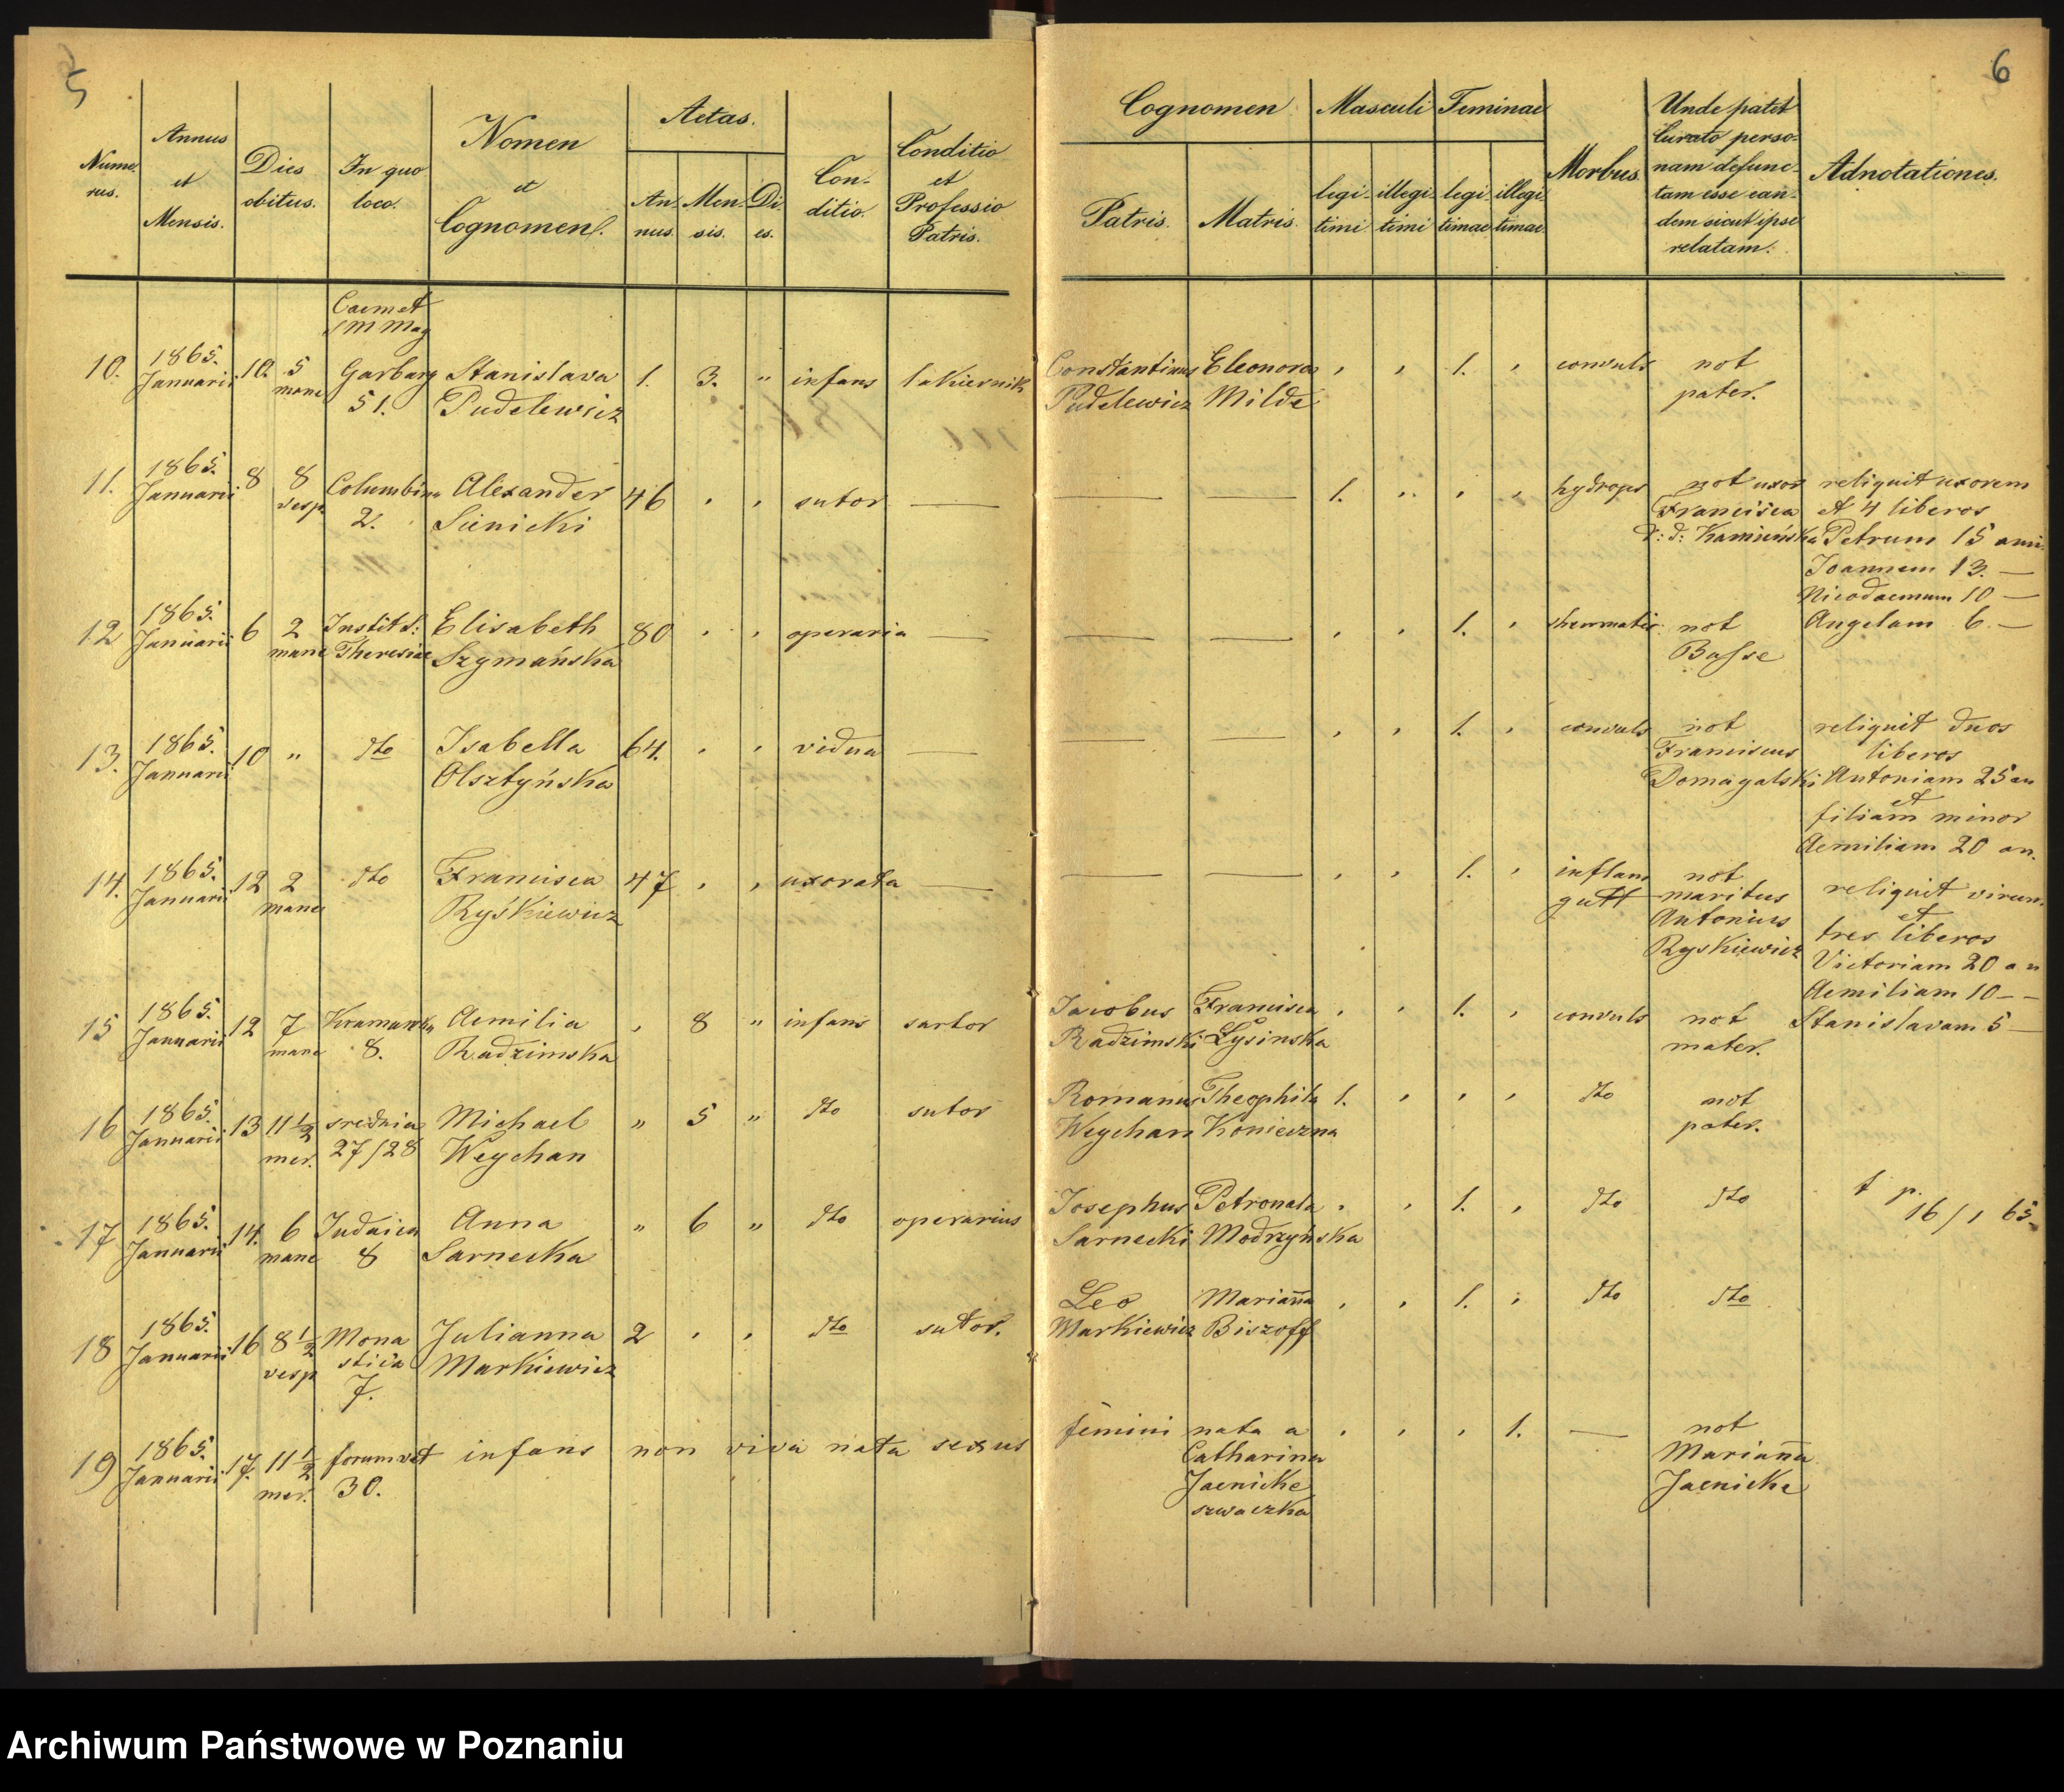 5
6
Numerus.
Annus et Mensis.
Dies obitus.
In quo loco.
Nomen et Cognomen.
Aetas.
Annus. Mensis. Dies.
Conditio.
Conditio et Professio Patris.
Cognomen
Patris. Matris.
Masculi
legitimi illegitimi
Feminae
legitimae illegitimae
Morbus.
Unde patet
Curato perso-
nam defunc-
tam esse ean-
dem sicut ipse
relatam.
Adnotationes.
Coemet
S M Mag
10. 1865. Januarii 10. 5 mane Garbary 51. Stanislava Pudelewicz 1. 3. " infans lakiernik Constantinus Pudelewicz Eleonora Milde , , 1. , convuls not pater.
11. 1865. Januarii 8 8 vesp Columbina 2. Alexander Sienicki 46 , , sutor — — — 1. , , , hydrops not uxor Francisca d: d: Kamieńska
reliquit uxorem
et 4 liberos
Petrum 15 ann
Joannem 13. —
Nicodaemum 10 —
Angelam 6 —
12 1865. Januarii 6 2 mane Instit S: Theresiae Elisabeth Szymańska 80 , , operaria — — — , , 1. , rheumatis. not Basse
13. 1865. Januarii 10 " dto Isabella Olsztyńska 64. , , vidua — — — , , 1. , convuls not Franciscus Domagalski
reliquit duos
liberos
Antoniam 25 an
et
filiam minor
Aemiliam 20 an.
14. 1865. Januarii 12 2 mane dto Francisca Ryśkiewicz 47 , , uxorata — — — , , 1. , inflam gutt not maritus Antonius Ryskiewicz
reliquit virum
et
tres liberos
Victoriam 20 an
Aemiliam 10 - -
Stanislavam 5 —
15 1865. Januarii 12 7 mane Kramarska 8. Aemilia Radzimska , 8 " infans sartor Jacobus Radzimski Francisca Łysinska , , 1. , convuls not mater.
16 1865. Januarii 13 11 1/2 mer. srednia 27/28 Michael Weychan " 5 " dto sutor Romanus Weychan Theophila Konieczna 1. , , , dto not pater.
17 1865. Januarii 14. 6 mane Judaica 8 Anna Sarnecka " 6 " dto operarius Josephus Sarnecki Petronela Modrzyńska , , 1. , dto dto t p. 16/1 65
18 1865. Januarii 16 8 1/2 vesp Mona stica 7. Julianna Markiewicz 2 , , dto sutor. Leo Markiewicz Marianna Biszoff , , 1. , dto dto
19 1865. Januarii 17. 11 1/2 mer. forum vet 30. infans non viva nata sexus femini nata a Catharina Jaenicke szwaczka , , , 1. — not Marianna Jaenicke
Archiwum Państwowe w Poznaniu